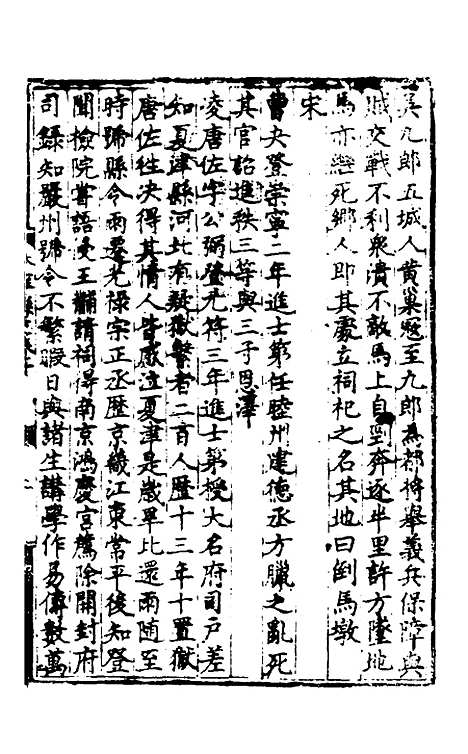 吳九郎五城人黃巢冦至九郎為都将舉義兵保障與
賊交戰不利衆潰不敵馬上自刭奔逐半里許方墜地
馬亦繼死鄉人即其處立祠祀之名其地曰倒馬墩
宋
曹夬登崇寧二年進士第任睦州建德丞方臘之亂死
其官詔進秩三等與三子恩澤
凌唐佐字公弼登元符三年進士第授大名府司戶差
知夏津縣河北有疑獄繫者二百人歴十三年十置獄
唐佐往决得其情人皆感泣夏津是歲旱比還雨随至
時號縣令雨遷光禄宗正丞歴京畿江東常平後知登
聞檢院嘗語及王黼請祠得南京鴻慶宮薦除開封府
司録知嚴州號令不繁暇日與諸生講學作易傳數萬